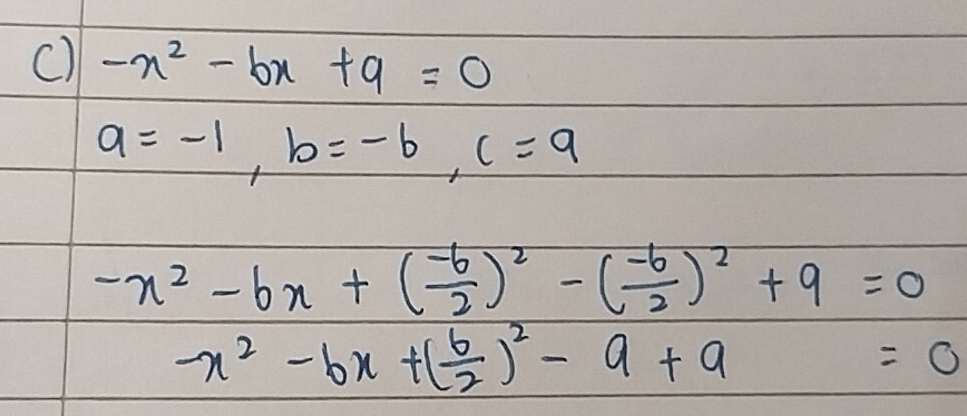 c) -x² - 6x + 9 = 0
a = -1, b = -6, c = 9
-x² - 6x + (-6/2)² - (-6/2)² + 9 = 0
-x² - 6x + (6/2)² - 9 + 9 = 0